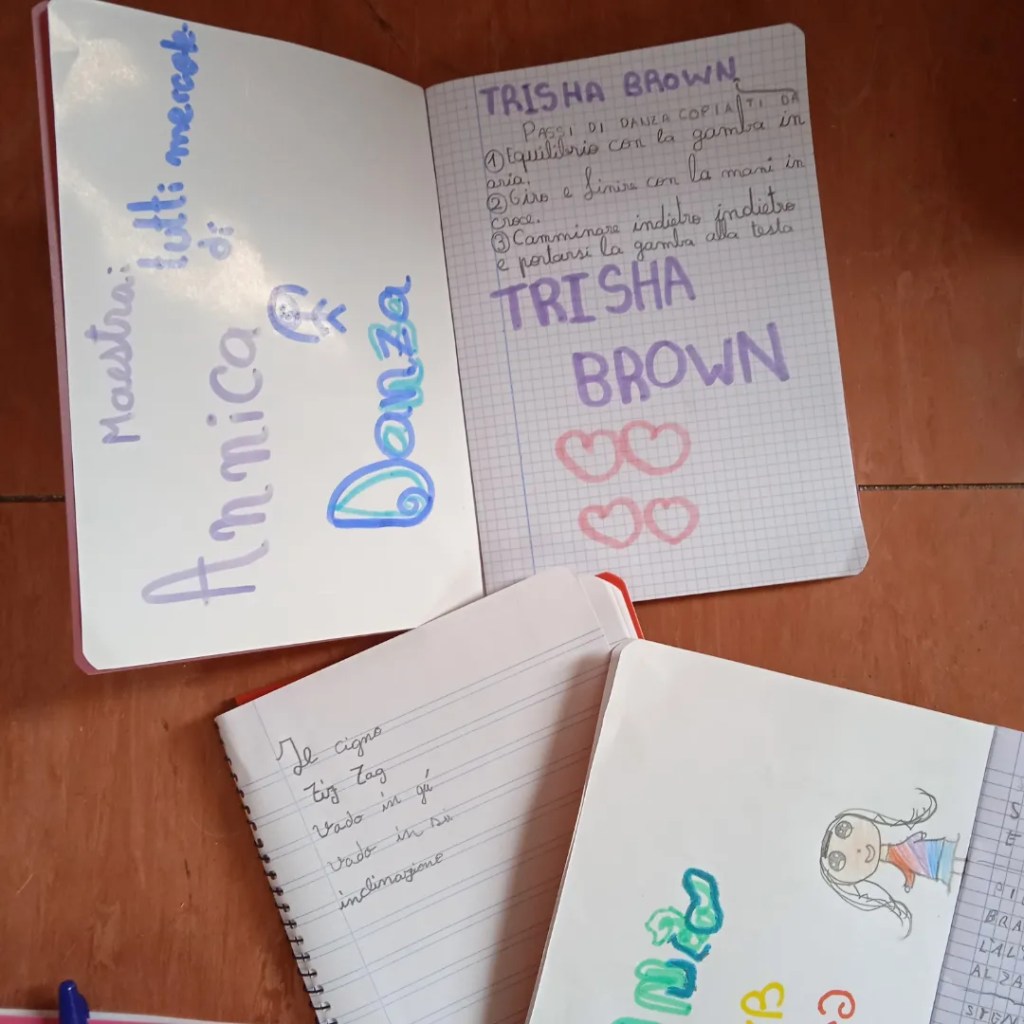 Maestra:
Annica
tutti
di
Danza
TRISHA BROWN
PASSI DI DANZA COPIATI DA
① Equilibrio con la gamba in
aria.
② Giro e finire con la mani in
croce.
③ Camminare indietro indietro
e portarsi la gamba alla testa
TRISHA
BROWN
Il cigno
Zig Zag
Vado in gú
vado in su
inclinazione
S
E
DI
BRA
L'AL
ALZA
SEGN